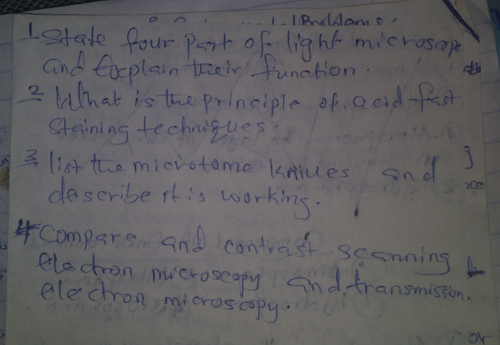 Problems.
1. State four part of light microscope
and Explain their function.
2 What is the principle of acid-fast
staining techniques.
3 list the microtome knives and
describe it is working.
4 Compare and contrast scanning
electron microscopy and transmission.
electron microscopy.
or